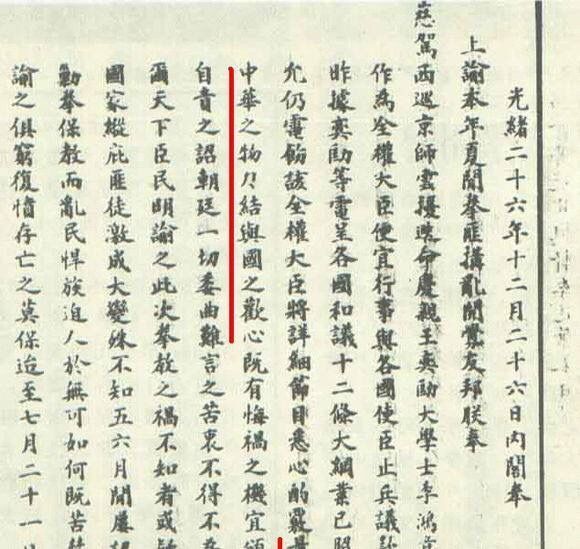 光緒二十六年十二月二十六日內閣奉
上諭本年夏間拳匪搆亂開釁友邦朕奉
慈駕西巡京師雲擾迭命慶親王奕劻大學士李鴻
作為全權大臣便宜行事與各國使臣止兵議
昨據奕劻等電呈各國和議十二條大綱業已照
允仍電飭該全權大臣將詳細節目悉心酌覈量
中華之物力結與國之歡心既有悔禍之機宜頒
自責之詔朝廷一切委曲難言之苦衷不得不為
爾天下臣民明諭之此次拳教之禍不知者或疑
國家縱庇匪徒激成大變殊不知五六月間屢詔
勦拳保教而亂民悍族迫人於無可如何既苦禁
諭之俱窮復憤存亡之莫保迨至七月二十一